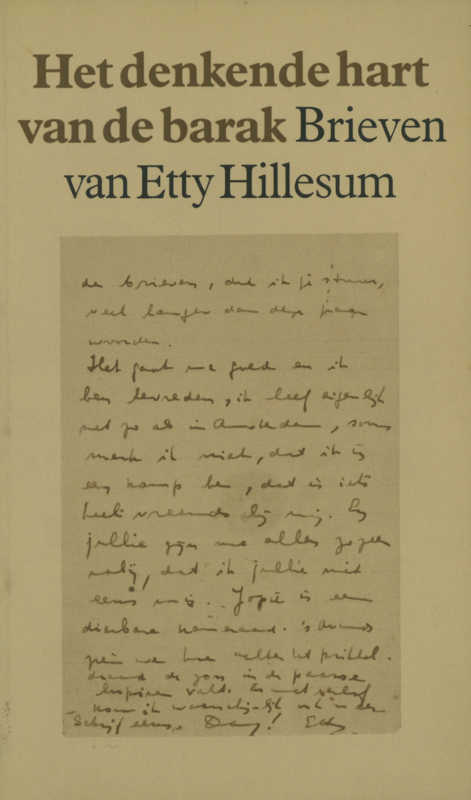 Het denkende hart
van de barak Brieven
van Etty Hillesum
de brieven, dat ik je stuur,
veel langer dan deze paar
woorden.
Het gaat me goed en ik
ben tevreden, ik leef eigenlijk
net zo als in Amsterdam, soms
merk ik niet, dat ik in
een kamp ben, dat is iets
heel vreemds bij mij. En
jullie zijn me allen zo zeer
nabij, dat ik jullie niet
eens mis. Jopie is een
dierbare kameraad. 's Avonds
zien we hoe achter het prikkel-
draad de zon in de paarse
lupinen valt. En met verlof
kom ik waarschijnlijk ook nog
Schrijf eens. Dag! Etty